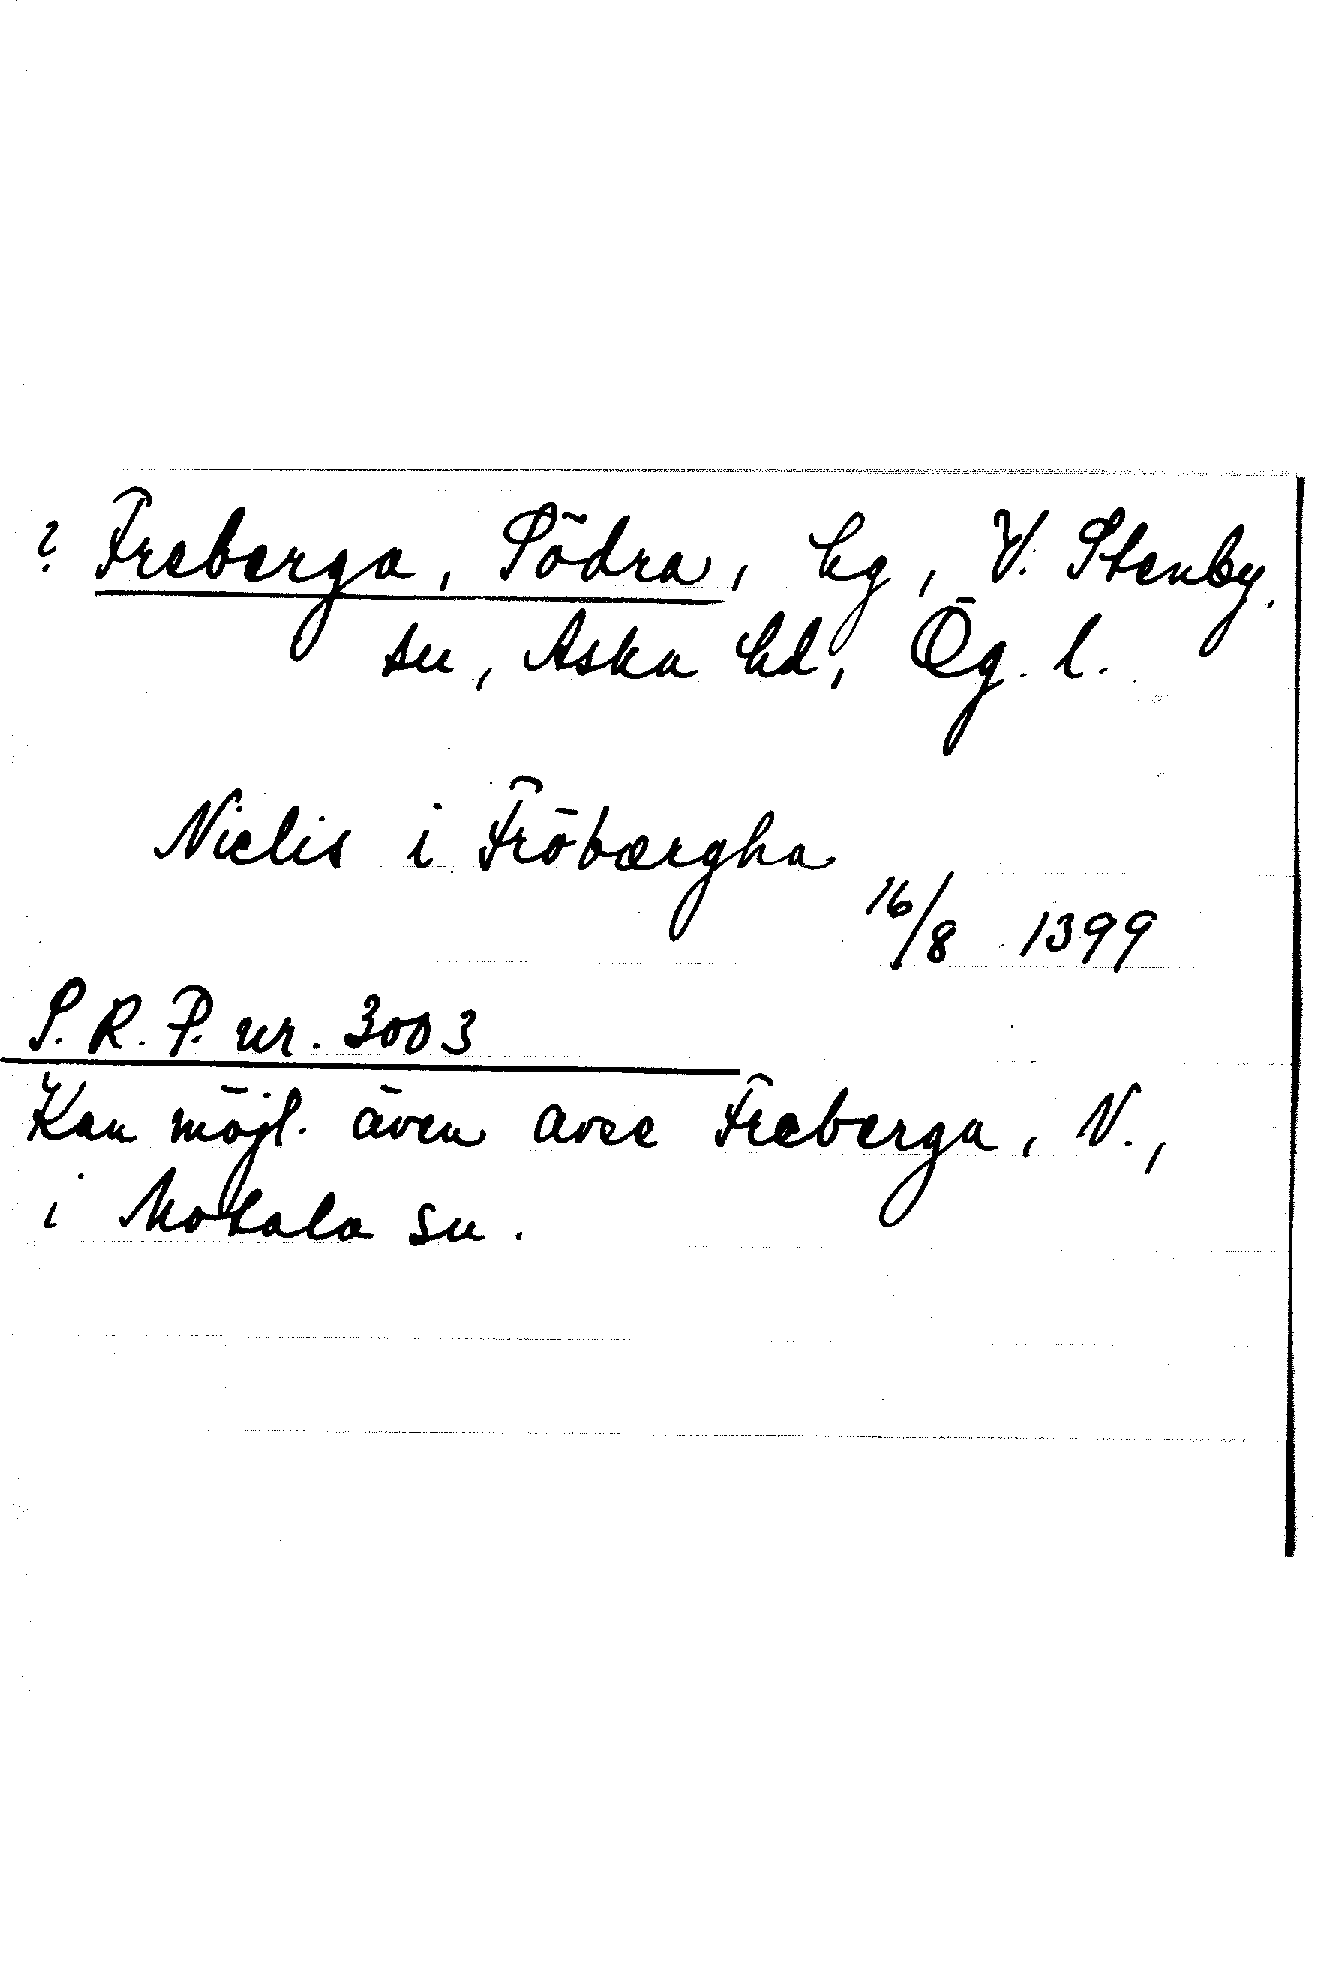 ? Freberga, Södra, hg, V. Stenby.
sn, Aska hd, Ög. l.
Niclis i Fröbærgha
16/8 1399
S. R. P. nr. 3003
Kan möjl. även avse Freberga, N.,
i Motala sn.